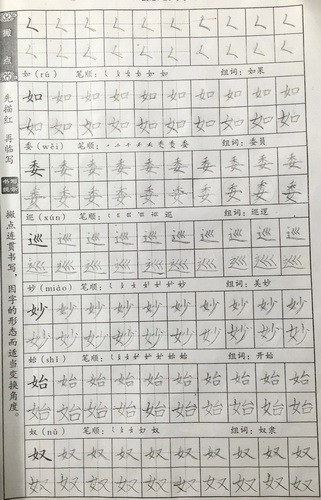 撇点
先描红 再临写
书写技法
撇点连贯书写，因字的形态而适当变换角度。
𡿨 𡿨 𡿨 𡿨 𡿨 𡿨 𡿨 𡿨 𡿨 𡿨
𡿨 𡿨 𡿨 𡿨 𡿨 𡿨 𡿨 𡿨 𡿨 𡿨
如（rú） 笔顺： 如 如 组词：如果
如 如 如 如 如 如 如 如 如 如
如 如 如 如 如 如 如 如 如 如
委（wěi） 笔顺： 委 委 组词：委员
委 委 委 委 委 委 委 委 委 委
委 委 委 委 委 委 委 委 委 委
巡（xún） 笔顺： 巡 组词：巡逻
巡 巡 巡 巡 巡 巡 巡 巡 巡 巡
巡 巡 巡 巡 巡 巡 巡 巡 巡 巡
妙（miào） 笔顺： 妙 组词：美妙
妙 妙 妙 妙 妙 妙 妙 妙 妙 妙
妙 妙 妙 妙 妙 妙 妙 妙 妙 妙
始（shǐ） 笔顺： 始 始 组词：开始
始 始 始 始 始 始 始 始 始 始
始 始 始 始 始 始 始 始 始 始
奴（nú） 笔顺： 奴 组词：奴隶
奴 奴 奴 奴 奴 奴 奴 奴 奴 奴
奴 奴 奴 奴 奴 奴 奴 奴 奴 奴